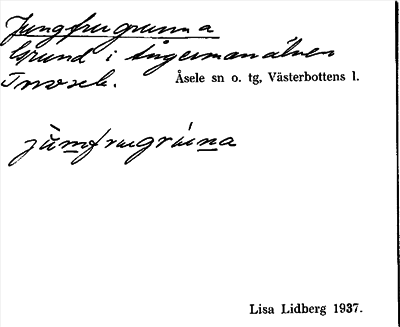 Jungfrugrunna
Grund i Ångermanälven
Åsele sn o. tg, Västerbottens l.
jùmfrugrúna
Lisa Lidberg 1937.